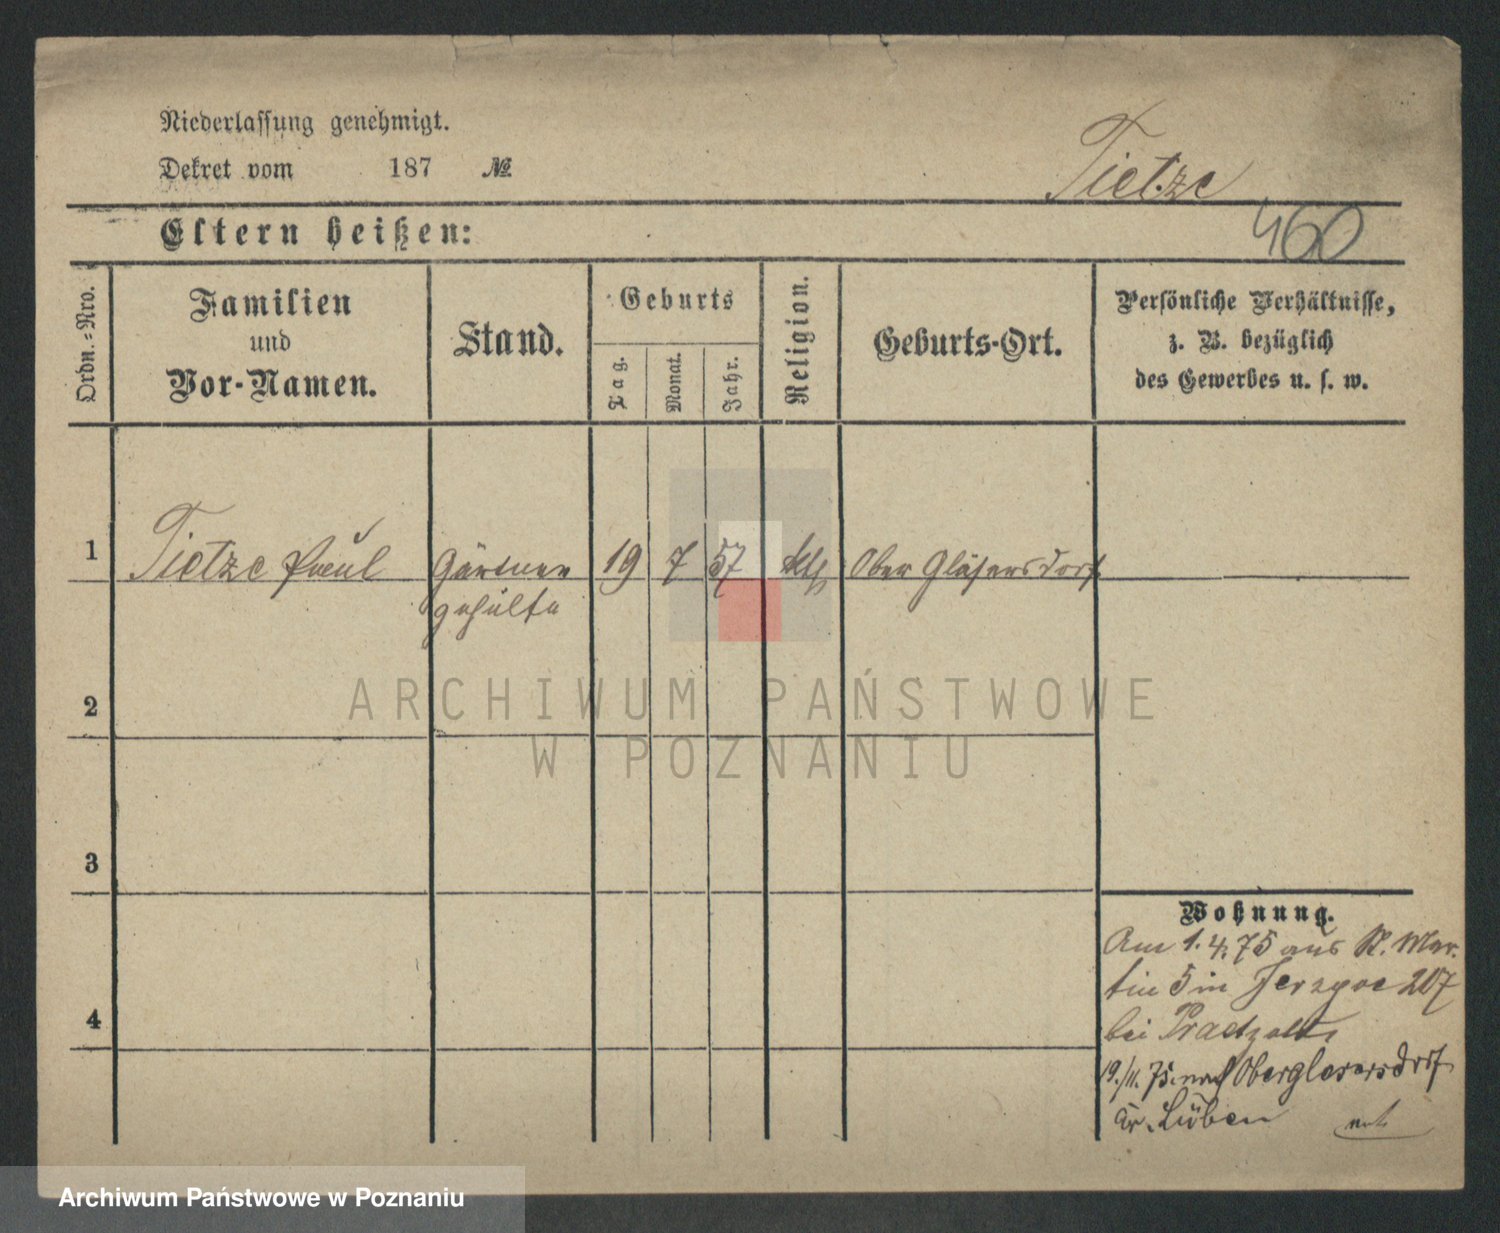 Niederlassung genehmigt.
Dekret vom 187 №
Tietze
460
Eltern heißen:
Ordn.-Nro.
Familien
und
Vor-Namen.
Stand.
Geburts
Tag.
Monat.
Jahr.
Religion.
Geburts-Ort.
Persönliche Verhältnisse,
z. B. bezüglich
des Gewerbes u. s. w.
1 Tietze Paul Gärtner 19 7 57 Ober Gläsersdorf
gehülfe
2
ARCHIWUM PAŃSTWOWE
W POZNANIU
3
Wohnung.
Am 1.4.75 aus St. Mar-
tin 5 in Jerzyce 207
4
bei
19./11. 75. nach Oberglesersdorf
Kr. Lüben
Archiwum Państwowe w Poznaniu